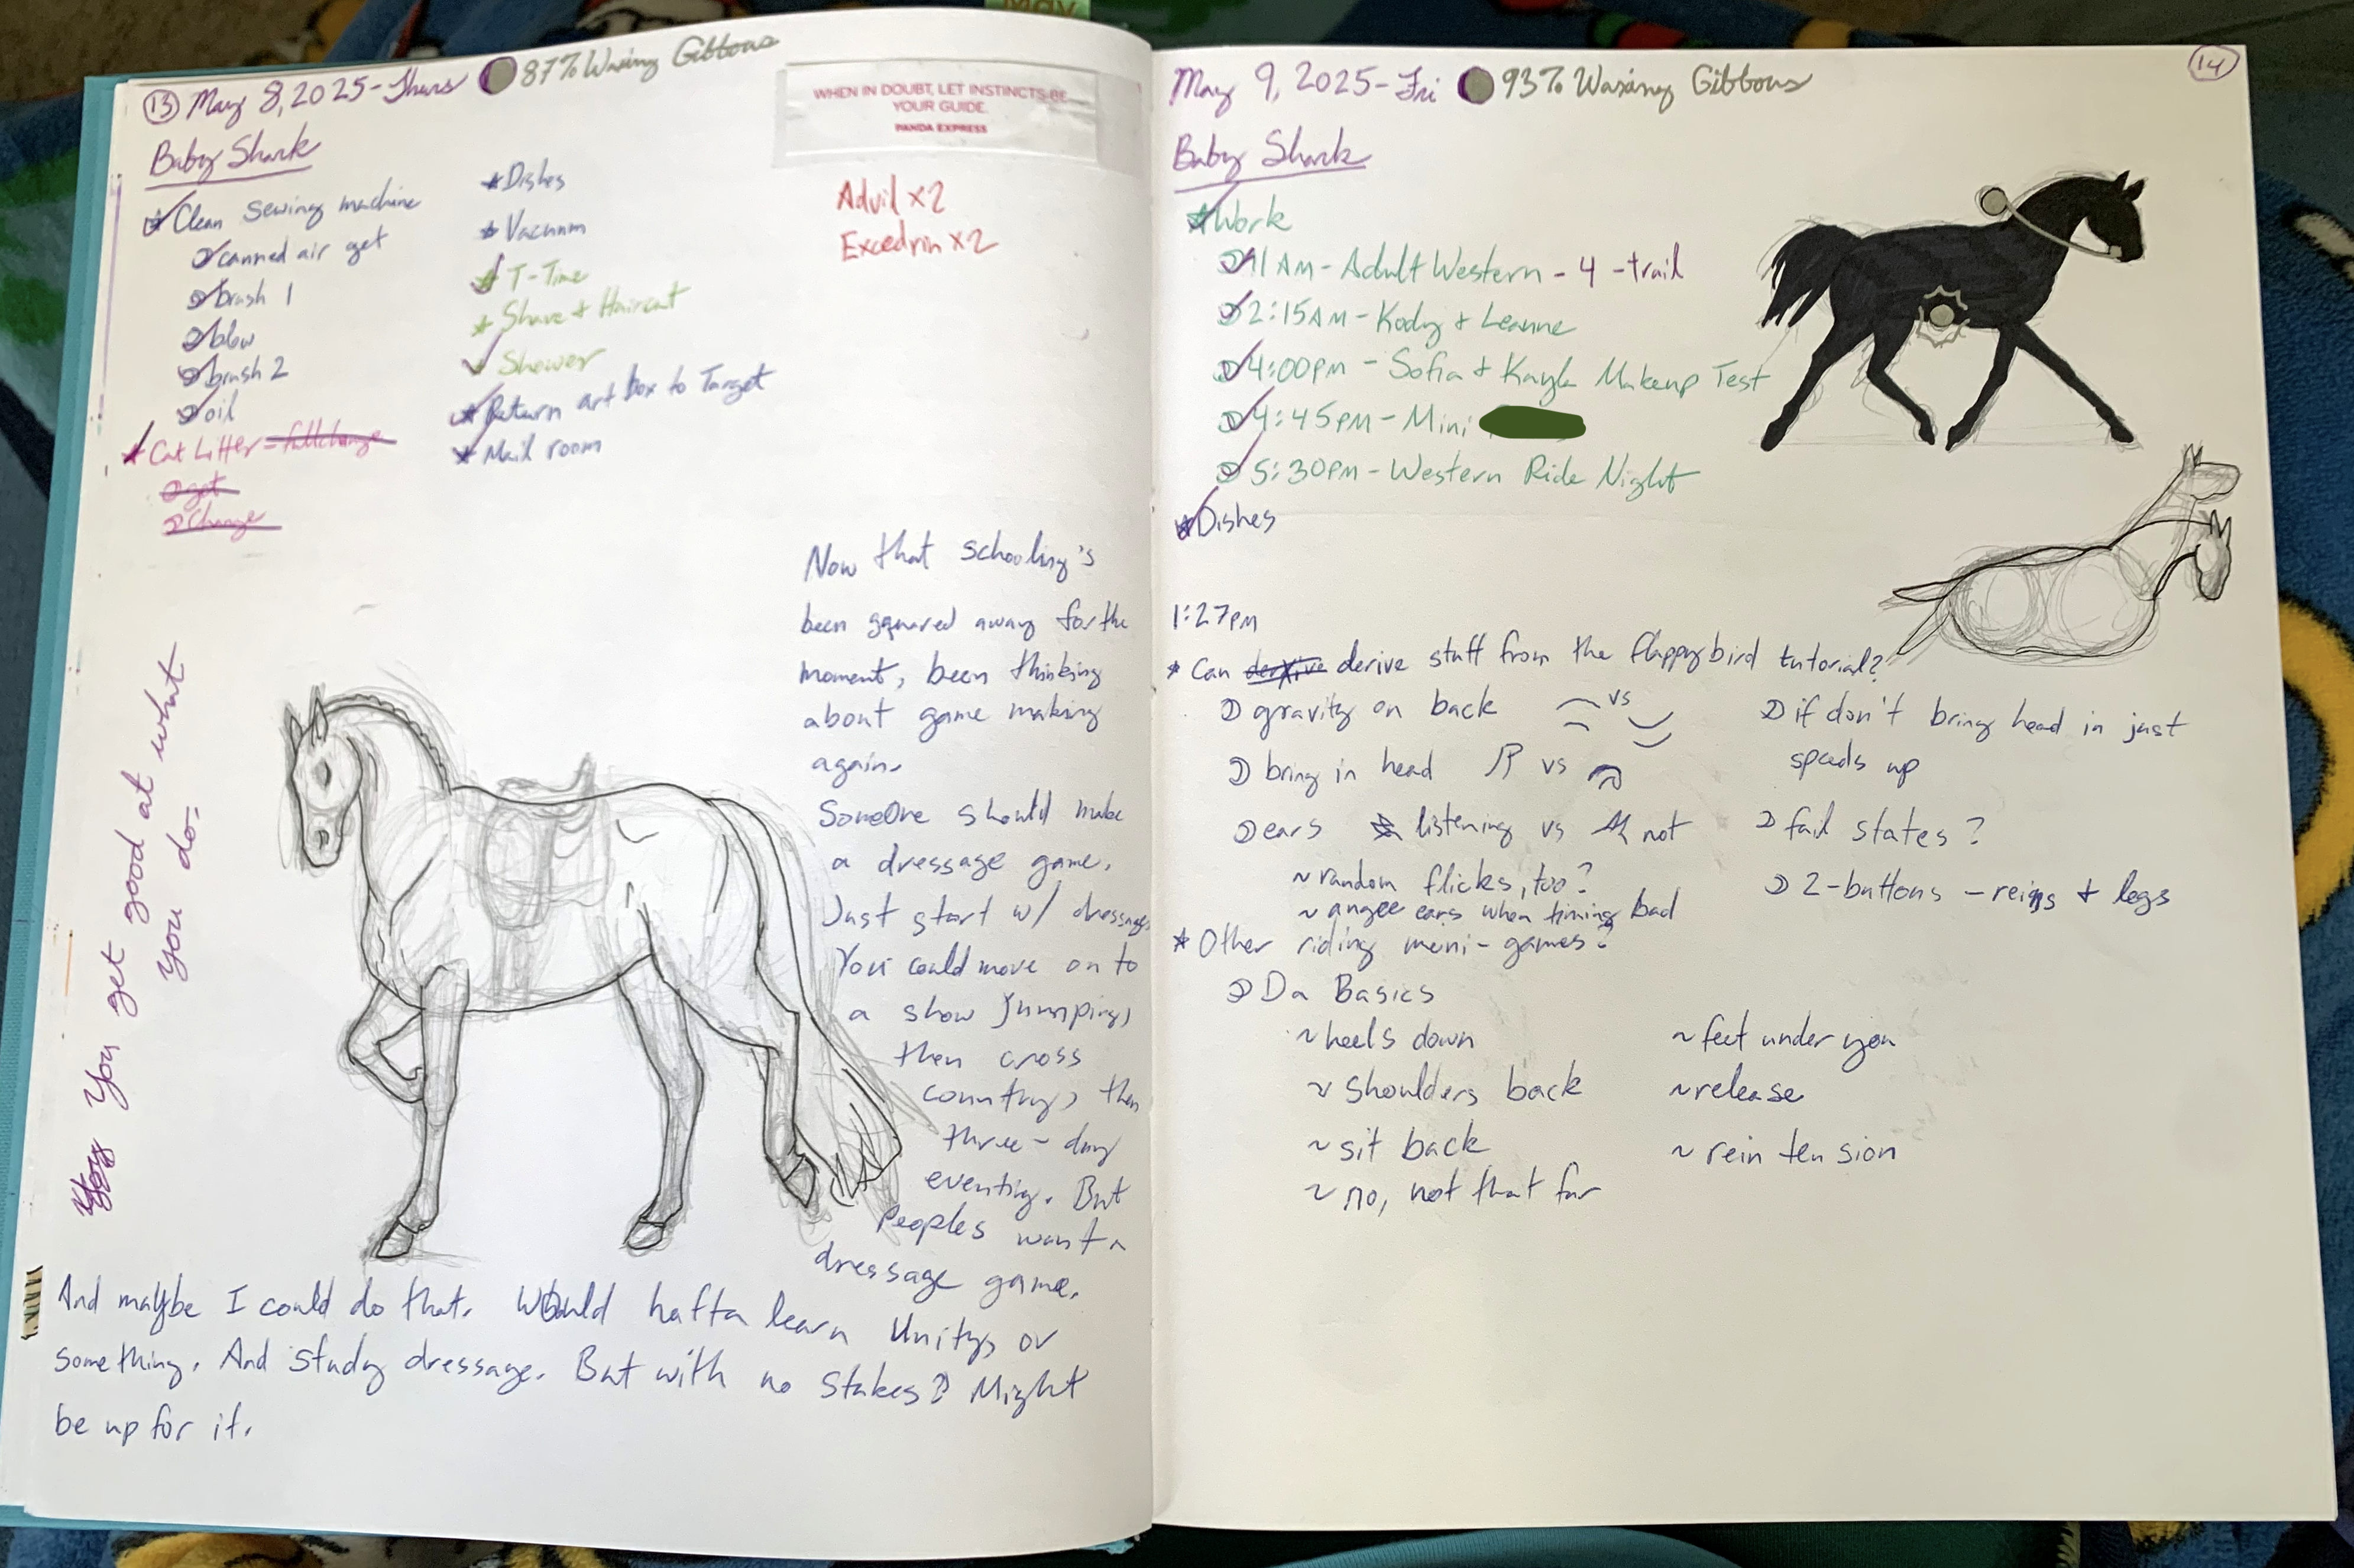 May
13 May 8, 2025-Thurs 87% Waxing Gibbous
WHEN IN DOUBT, LET INSTINCTS BE
YOUR GUIDE.
PANDA EXPRESS
Baby Shark
Clean sewing machine
canned air get
brush 1
blow
brush 2
oil
Cat Litter = full change
get
Change
Dishes
Vacuum
T-Time
Shave & Haircut
Shower
Return art box to Target
Mail room
Advil x2
Excedrin x2
You get good at what
you do.
Now that schooling's
been squared away for the
moment, been thinking
about game making
again.
Someone should make
a dressage game.
Just start w/ dressage
You could move on to
a show jumping,
then cross
country, then
three-day
eventing. But
Peoples want a
dressage game.
And maybe I could do that. Would hafta learn Unity, or
something. And study dressage. But with no stakes? Might
be up for it.
14
May 9, 2025-Fri 93% Waxing Gibbous
Baby Shark
Work
11 AM - Adult Western - 4 - trail
2:15AM - Kody & Leanne
4:00PM - Sofia & Kayla Makeup Test
4:45PM - Mini
5:30PM - Western Ride Night
Dishes
1:27PM
* Can derive derive stuff from the flappybird tutorial?
gravity on back vs
bring in head vs
ears listening vs not
~ random flicks, too?
~ angee ears when timing bad
if don't bring head in just
speeds up
fail states?
2-buttons - reins & legs
* Other riding mini-games?
Da Basics
~ heels down
~ shoulders back
~ sit back
~ no, not that far
~ feet under you
~ release
~ rein tension